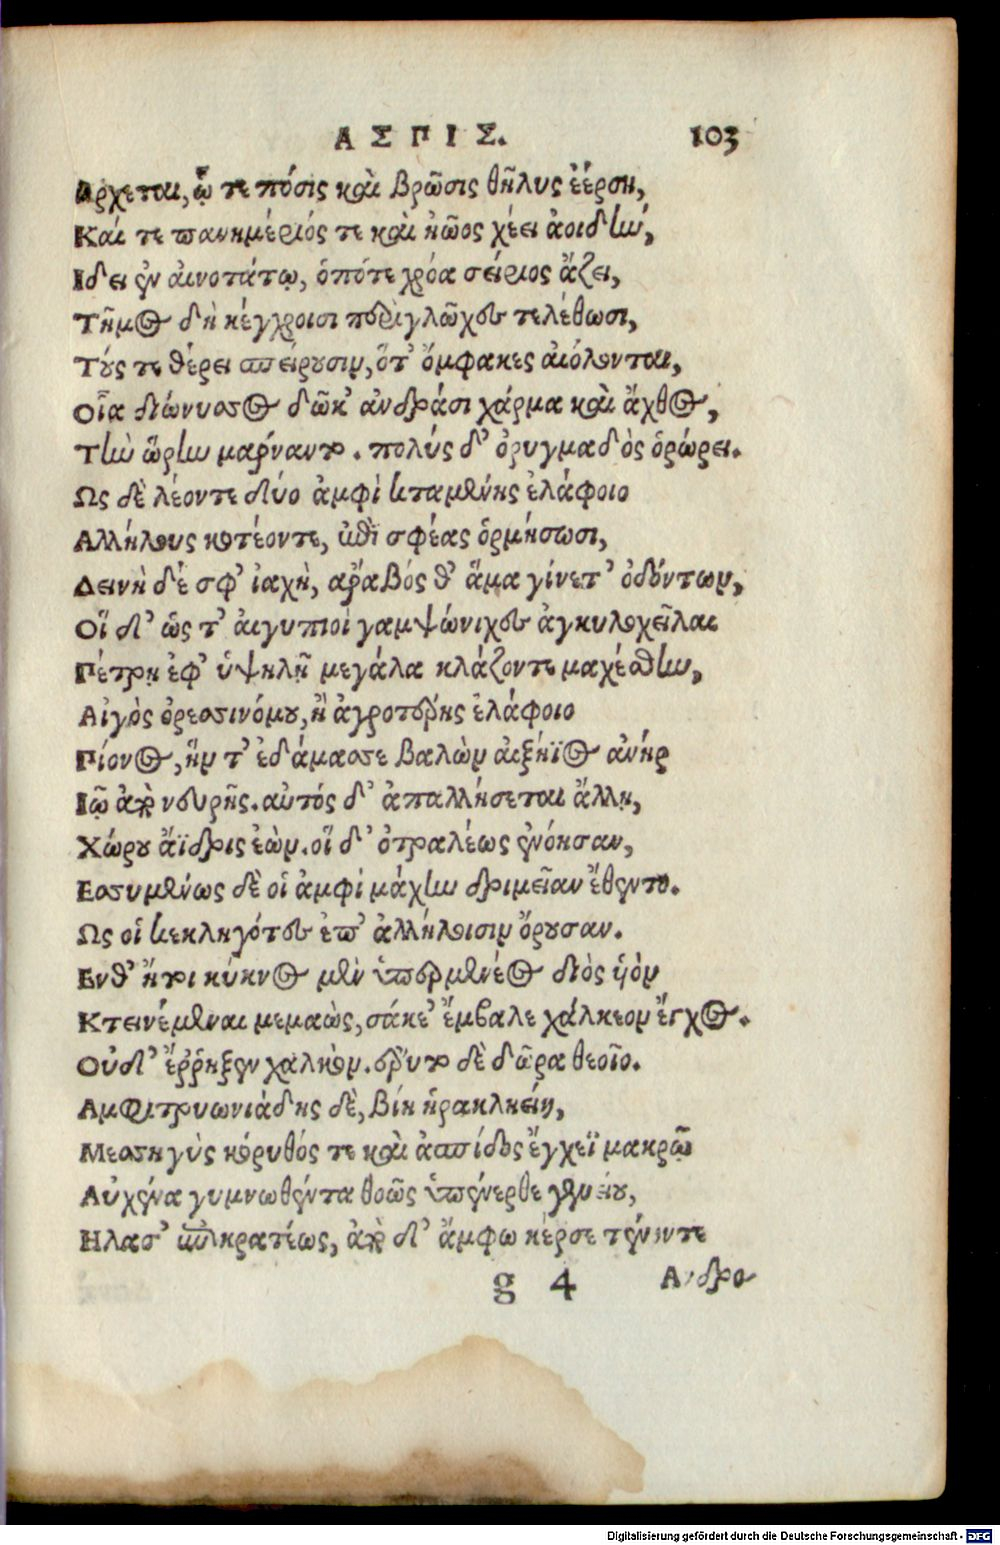 ΑΣΠΙΣ. 103
Αρχεται, ᾧ τε πόσις καὶ βρῶσις θῆλυς ἐέρση,
Καί τε πανημέριός τε καὶ ἠῶος χέει ἀοιδὴν,
Ιδει ἐν αἰνοτάτῳ, ὁπότε χρόα σείριος ἄζει,
Τῆμος δὴ κέγχροισι περιγλῶχες τελέθωσι,
Τούς τε θέρει σπείρουσιν, ὅτ' ὄμφακες αἰόλονται,
Οἷα διώνυσος δῶκ' ἀνδράσι χάρμα καὶ ἄχθος,
Τὴν ὥρην μαρναντο. πολύς δ' ὀρυγμαδὸς ὀρώρει.
Ως δὲ λέοντε δύο ἀμφὶ κταμένης ἐλάφοιο
Αλλήλους κοτέοντε, ἐπὶ σφέας ὁρμήσωσι,
Δεινὴ δέ σφ' ἰαχὴ, ἄραβός θ' ἅμα γίνετ' ὀδόντων,
Οἵ δ' ὥς τ' αἰγυπιοὶ γαμψώνιχες ἀγκυλοχεῖλαι
Πέτρῃ ἐφ' ὑψηλῇ μεγάλα κλάζοντε μαχέσθην,
Αἰγὸς ὀρεσσινόμου, ἢ ἀγροτέρης ἐλάφοιο
Πίονος, ἥν τ' ἐδάμασσε βαλὼν αἰξήϊος ἀνήρ
Ιῷ ἀπὸ νευρῆς. αὐτός δ' ἀπαλλήσεται ἄλλῃ,
Χώρου ἄϊδρις ἐὼν. οἵ δ' ὀτραλέως ἐνόησαν,
Εσσυμένως δὲ οἱ ἀμφὶ μάχην δριμεῖαν ἔθεντο.
Ως οἱ κεκληγότες ἐπ' ἀλλήλοισιν ὄρουσαν.
Ενθ' ἤτοι κύκνος μὲν ὑπερμενέος διὸς υἱὸν
Κτεινέμεναι μεμαὼς, σάκει ἔμβαλε χάλκεον ἔγχος.
Οὐδ' ἔῤῥηξεν χαλκὸν. ἔρυτο δὲ δῶρα θεοῖο.
Αμφιτρυωνιάδης δὲ, βίη ἡρακληείη,
Μεσσηγὺς κόρυθός τε καὶ ἀσπίδος ἔγχεϊ μακρῷ
Αὐχένα γυμνωθέντα θοῶς ὑπένερθε γενείου,
Ηλασ' ἐπικρατέως, ἀπὸ δ' ἄμφω κέρσε τένοντε
g 4 Ανδρο
Digitalisierung gefördert durch die Deutsche Forschungsgemeinschaft - DFG